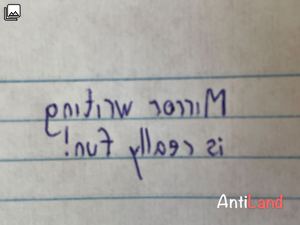 Mirror writing
is really fun!
AntiLand